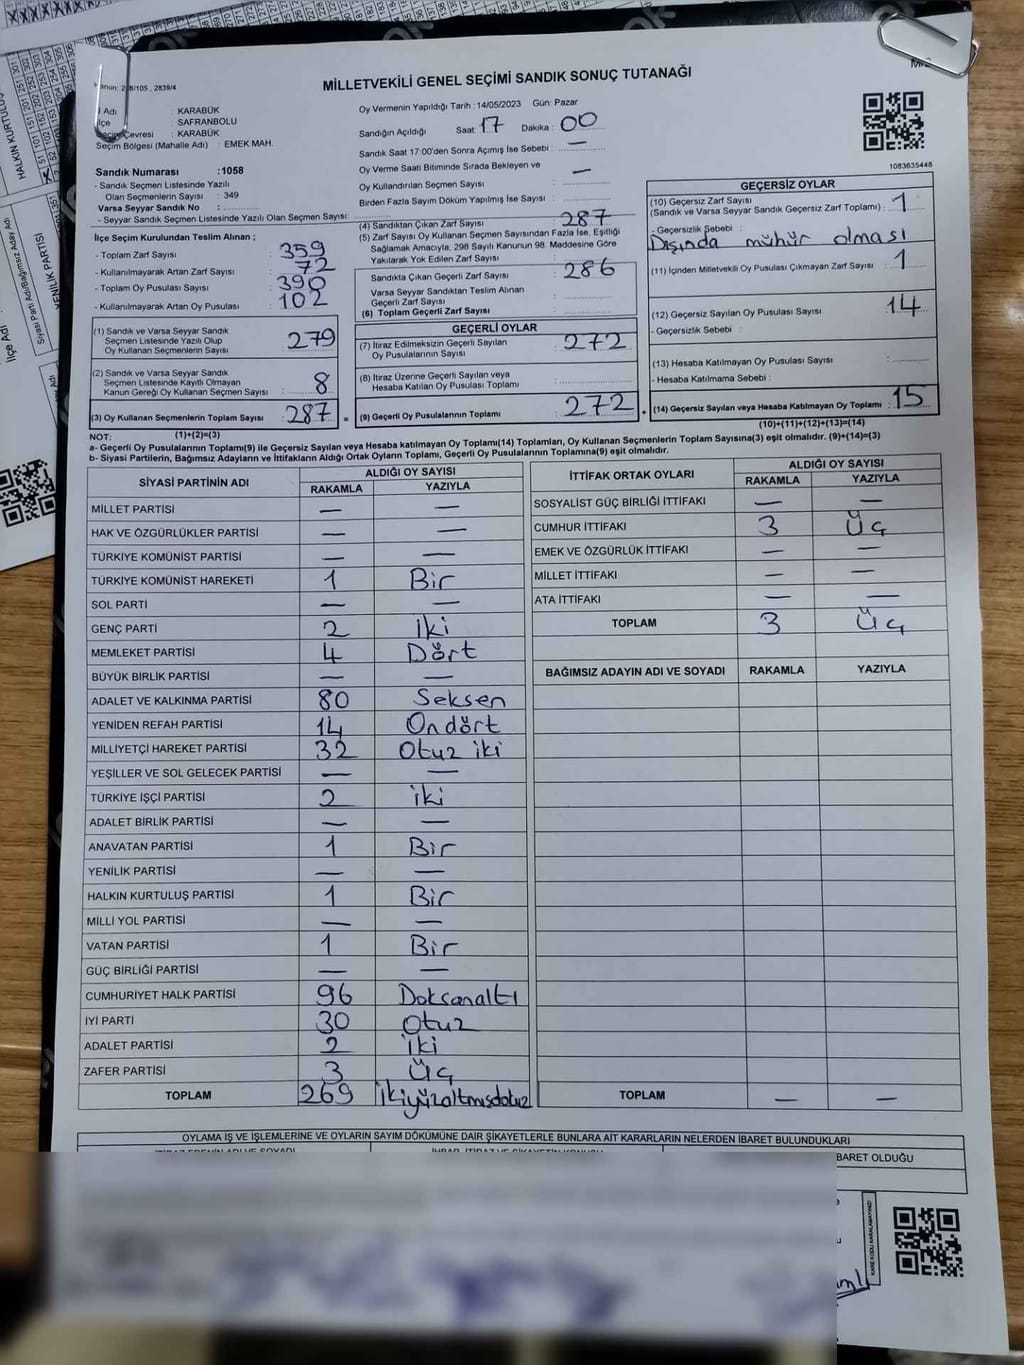 MİLLETVEKİLİ GENEL SEÇİMİ SANDIK SONUÇ TUTANAĞI
/105 , 2839/4
Adı : KARABÜK
İlçe : SAFRANBOLU
Seçim Çevresi : KARABÜK
Seçim Bölgesi (Mahalle Adı) : EMEK MAH.
Sandık Numarası :1058
- Sandık Seçmen Listesinde Yazılı
Olan Seçmenlerin Sayısı : 349
Varsa Seyyar Sandık No :
- Seyyar Sandık Seçmen Listesinde Yazılı Olan Seçmen Sayısı:
Oy Vermenin Yapıldığı Tarih : 14/05/2023 Gün: Pazar
Sandığın Açıldığı Saat: 17 Dakika : 00
Sandık Saat 17:00'den Sonra Açımış İse Sebebi : —
Oy Verme Saati Bitiminde Sırada Bekleyen ve
Oy Kullandırılan Seçmen Sayısı : —
Birden Fazla Sayım Döküm Yapılmış İse Sayısı :
1083635448
İlçe Seçim Kurulundan Teslim Alınan ;
- Toplam Zarf Sayısı : 359
- Kullanılmayarak Artan Zarf Sayısı : 72
- Toplam Oy Pusulası Sayısı : 390
- Kullanılmayarak Artan Oy Pusulası : 102
(1) Sandık ve Varsa Seyyar Sandık
Seçmen Listesinde Yazılı Olup
Oy Kullanan Seçmenlerin Sayısı : 279
(2) Sandık ve Varsa Seyyar Sandık
Seçmen Listesinde Kayıtlı Olmayan
Kanun Gereği Oy Kullanan Seçmen Sayısı : 8
(3) Oy Kullanan Seçmenlerin Toplam Sayısı : 287 =
(1)+(2)=(3)
(4) Sandıktan Çıkan Zarf Sayısı : 287
(5) Zarf Sayısı Oy Kullanan Seçmen Sayısından Fazla İse, Eşitliği
Sağlamak Amacıyla, 298 Sayılı Kanunun 98. Maddesine Göre
Yakılarak Yok Edilen Zarf Sayısı :
Sandıkta Çıkan Geçerli Zarf Sayısı : 286
Varsa Seyyar Sandıktan Teslim Alınan
Geçerli Zarf Sayısı :
(6) Toplam Geçerli Zarf Sayısı :
GEÇERLİ OYLAR
(7) İtiraz Edilmeksizin Geçerli Sayılan
Oy Pusulalarının Sayısı : 272
(8) İtiraz Üzerine Geçerli Sayılan veya
Hesaba Katılan Oy Pusulası Toplamı :
(9) Geçerli Oy Pusulalarının Toplamı : 272
GEÇERSİZ OYLAR
(10) Geçersiz Zarf Sayısı
(Sandık ve Varsa Seyyar Sandık Geçersiz Zarf Toplamı) : 1
- Geçersizlik Sebebi :
Dışında mühür olması
(11) İçinden Milletvekili Oy Pusulası Çıkmayan Zarf Sayısı : 1
(12) Geçersiz Sayılan Oy Pusulası Sayısı : 14
- Geçersizlik Sebebi :
(13) Hesaba Katılmayan Oy Pusulası Sayısı :
- Hesaba Katılmama Sebebi :
(14) Geçersiz Sayılan veya Hesaba Katılmayan Oy Toplamı : 15
(10)+(11)+(12)+(13)=(14)
NOT:
a- Geçerli Oy Pusulalarının Toplamı(9) ile Geçersiz Sayılan veya Hesaba katılmayan Oy Toplamı(14) Toplamları, Oy Kullanan Seçmenlerin Toplam Sayısına(3) eşit olmalıdır. (9)+(14)=(3)
b- Siyasi Partilerin, Bağımsız Adayların ve İttifakların Aldığı Ortak Oyların Toplamı, Geçerli Oy Pusulalarının Toplamına(9) eşit olmalıdır.
SİYASİ PARTİNİN ADI ALDIĞI OY SAYISI
RAKAMLA YAZIYLA
MİLLET PARTİSİ — —
HAK VE ÖZGÜRLÜKLER PARTİSİ — —
TÜRKİYE KOMÜNİST PARTİSİ — —
TÜRKİYE KOMÜNİST HAREKETİ 1 Bir
SOL PARTİ — —
GENÇ PARTİ 2 İki
MEMLEKET PARTİSİ 4 Dört
BÜYÜK BİRLİK PARTİSİ — —
ADALET VE KALKINMA PARTİSİ 80 Seksen
YENİDEN REFAH PARTİSİ 14 Ondört
MİLLİYETÇİ HAREKET PARTİSİ 32 Otuz iki
YEŞİLLER VE SOL GELECEK PARTİSİ — —
TÜRKİYE İŞÇİ PARTİSİ 2 iki
ADALET BİRLİK PARTİSİ — —
ANAVATAN PARTİSİ 1 Bir
YENİLİK PARTİSİ — —
HALKIN KURTULUŞ PARTİSİ 1 Bir
MİLLİ YOL PARTİSİ — —
VATAN PARTİSİ 1 Bir
GÜÇ BİRLİĞİ PARTİSİ — —
CUMHURİYET HALK PARTİSİ 96 Doksanaltı
İYİ PARTİ 30 Otuz
ADALET PARTİSİ 2 iki
ZAFER PARTİSİ 3 Üç
TOPLAM 269 ikiyüzaltmışdokuz
İTTİFAK ORTAK OYLARI ALDIĞI OY SAYISI
RAKAMLA YAZIYLA
SOSYALİST GÜÇ BİRLİĞİ İTTİFAKI — —
CUMHUR İTTİFAKI 3 Üç
EMEK VE ÖZGÜRLÜK İTTİFAKI — —
MİLLET İTTİFAKI — —
ATA İTTİFAKI — —
TOPLAM 3 Üç
BAĞIMSIZ ADAYIN ADI VE SOYADI RAKAMLA YAZIYLA
TOPLAM — —
OYLAMA İŞ VE İŞLEMLERİNE VE OYLARIN SAYIM DÖKÜMÜNE DAİR ŞİKAYETLERLE BUNLARA AİT KARARLARIN NELERDEN İBARET BULUNDUKLARI
BARET OLDUĞU
KARE KODU KARALAMAYINIZ!
HALKIN KURTULUŞ
YENİLİK PARTİSİ
Siyasi Parti Adı/Bağımsız Aday Adı
İlçe Adı